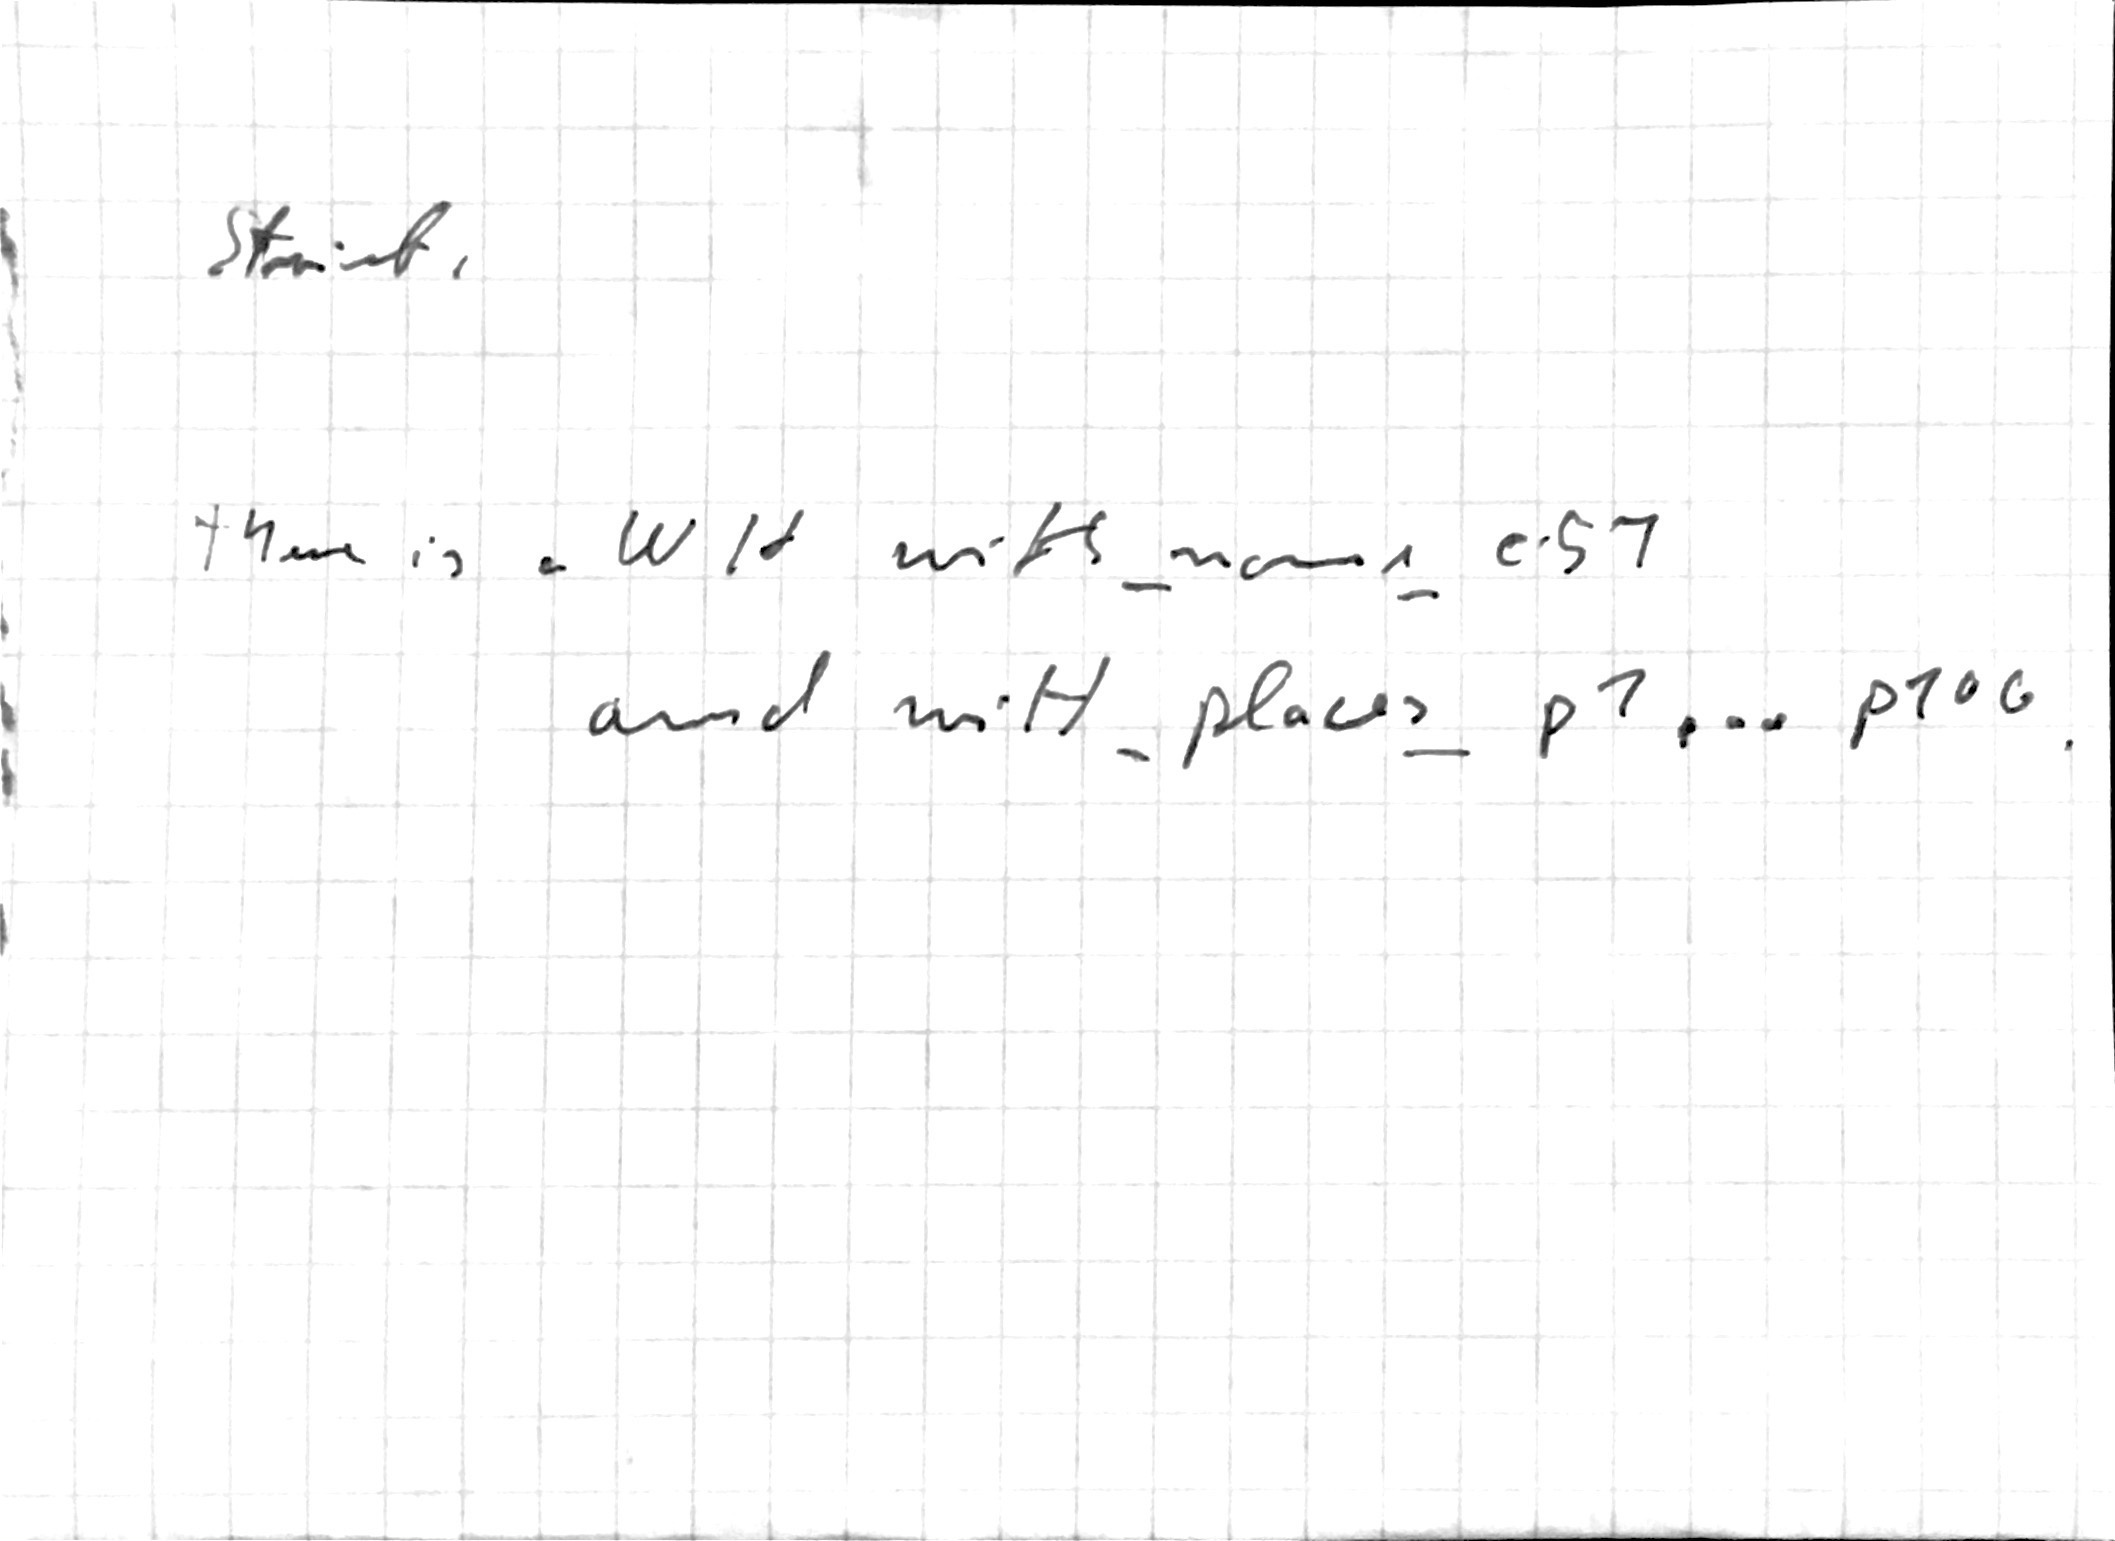 Strict.
there is a WH with_name_ c57
and with_places_ p1 ... p100.